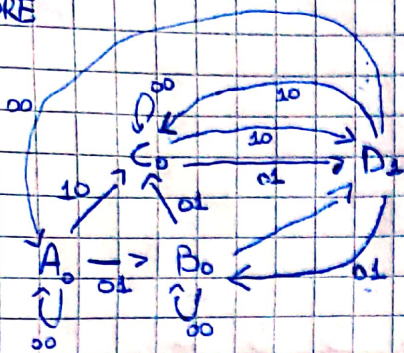 ORE
00
10
00
10
C₀
01
D₁
10
01
A₀
01
B₀
01
00
00